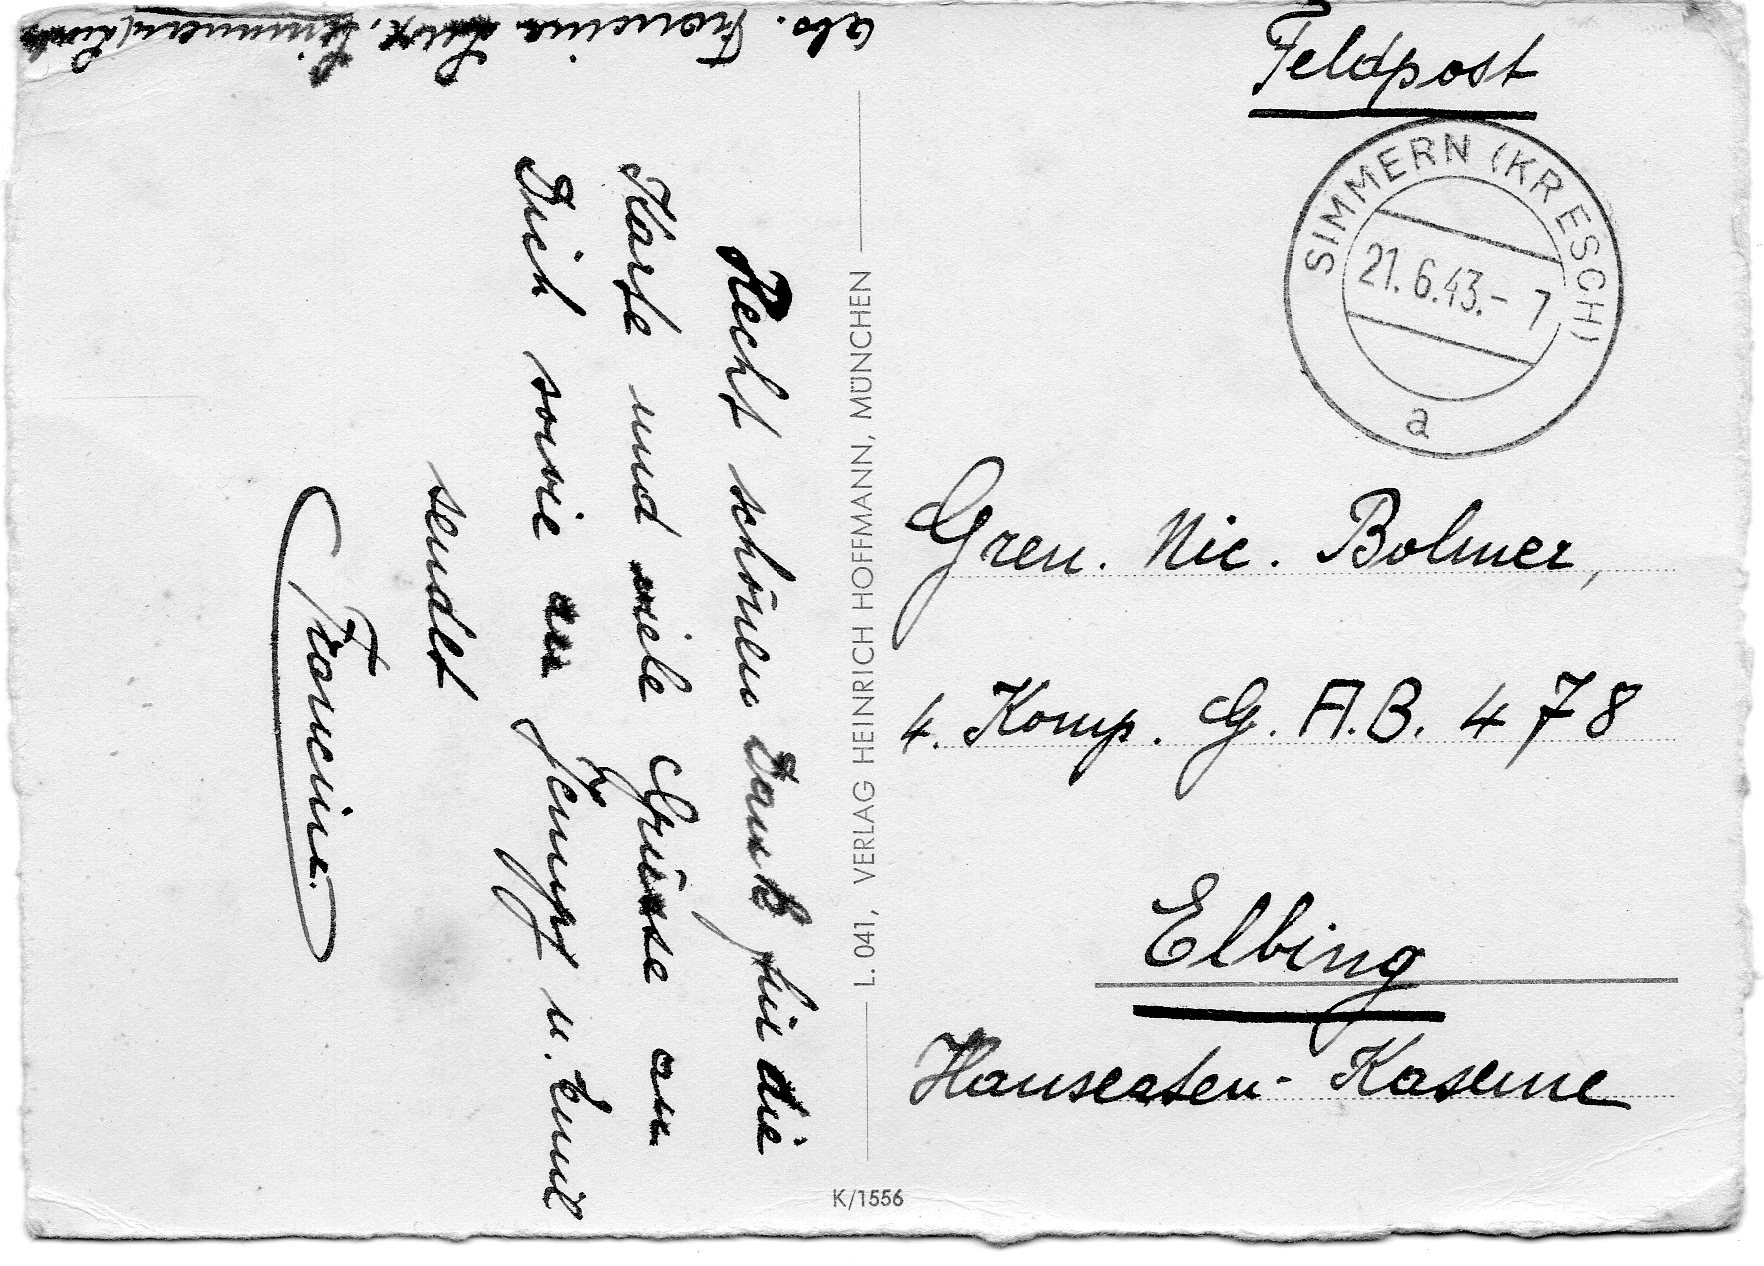 Abs. Francine Lux, Simmern/
Feldpost
SIMMERN (KR ESCH)
21.6.43.- 7
a
Recht schönen Dank für die
Karte und viele Grüsse an
Dich sowie an Jempy u. Emil
sendet
Francine.
L. 041, VERLAG HEINRICH HOFFMANN, MÜNCHEN
K/1556
Gren. Nic. Bolmer,
4. Komp. G. A.B. 478
Elbing
Hanseaten-Kaserne